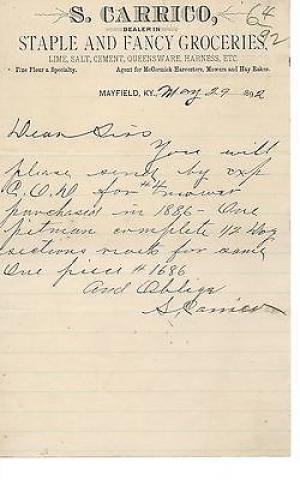 S. CARRICO, 64
DEALER IN 92
STAPLE AND FANCY GROCERIES,
LIME, SALT, CEMENT, QUEENSWARE, HARNESS, ETC.
Fine Flour a Specialty. Agent for McCormick Harvesters, Mowers and Hay Rakes.
MAYFIELD, KY., May 29 1892
Dear Sirs
You will
please send by exp
C.O.D for #4 mower
purchased in 1886 - One
pitman complete 1/2 Doz
sections for same
One piece # 1686
And Oblige
S. Carrico